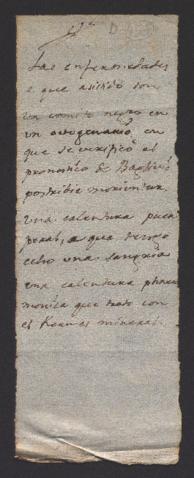 Las enfermedades
a que asistió son
un vomito negro en
un octogenario, en
que se verificó el
pronostico de Baglivio
postridie moriuntur
una calentura puer
peral, a que
una sangria
una calentura pneu
monica que trato con
el Kermes mineral.